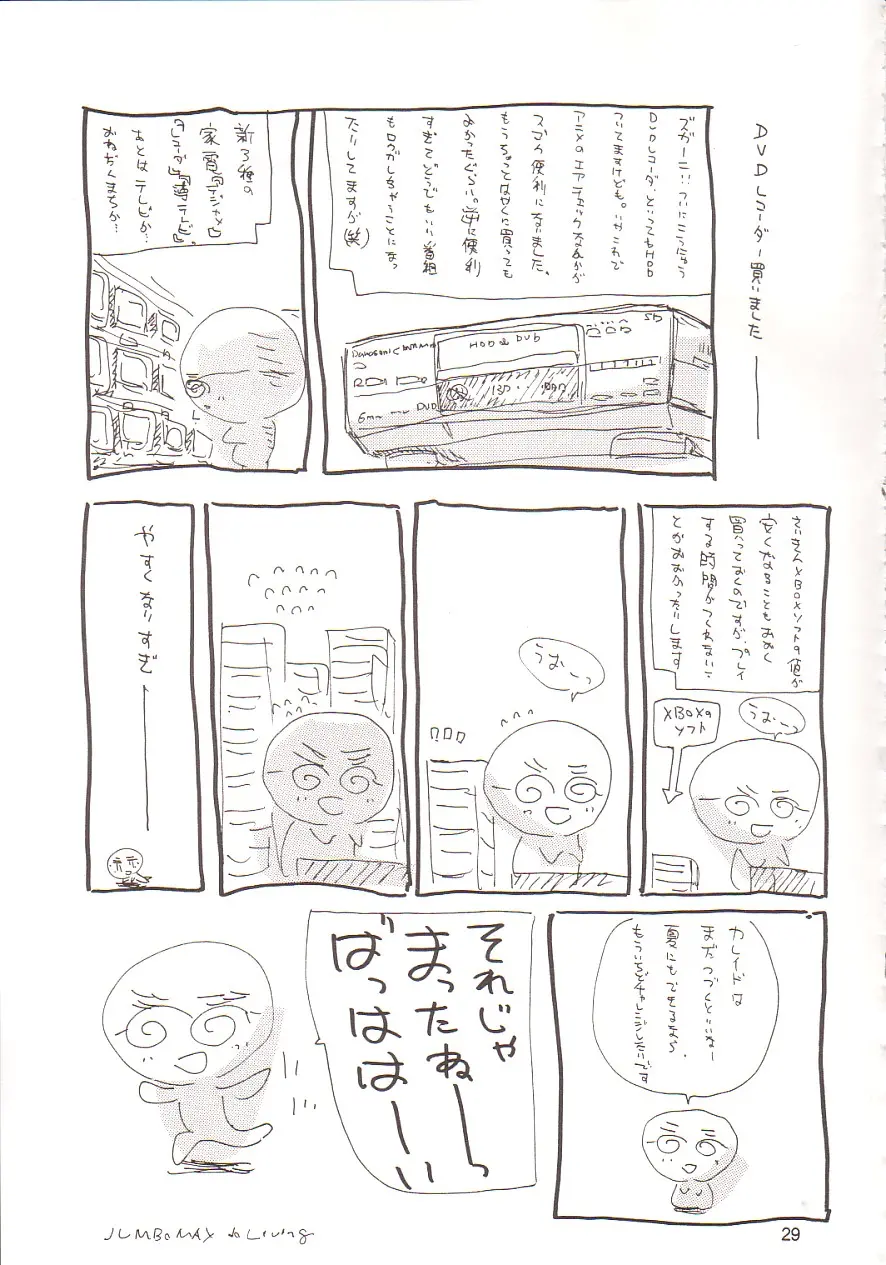 DVDレコーダー買いました
ズガーン…ついにこうにゅう
DVDレコーダー。といってもHDD
ついてますけども。いやこれで
アニメのエアチェックなんかが
スゴク便利になりました。
もうちょっとはやくに買っても
よかったぐらい。逆に便利
すぎてどうでもいい番組
もロクガしちゃうことになっ
たりしてますが(笑)
HDD & DVD
SD
DVD
新3種の
家電
あとはテレビか…
おねだんまちか…
さいきんXBOXソフトの値が
安くなることもおおく
買っておくのですが、プレイ
する時間がつくれないこ
とがおおかったりします
うおーっ
XBOXの
ソフト
うおーっ
やすくなりすぎ
カレイドは
まだつづくといいねー
夏にもできるなら、
もういちどチャレンジしたいです
それじゃ
まったねーっ
ばっはは
ーい
JUMBOMAX do Living
29